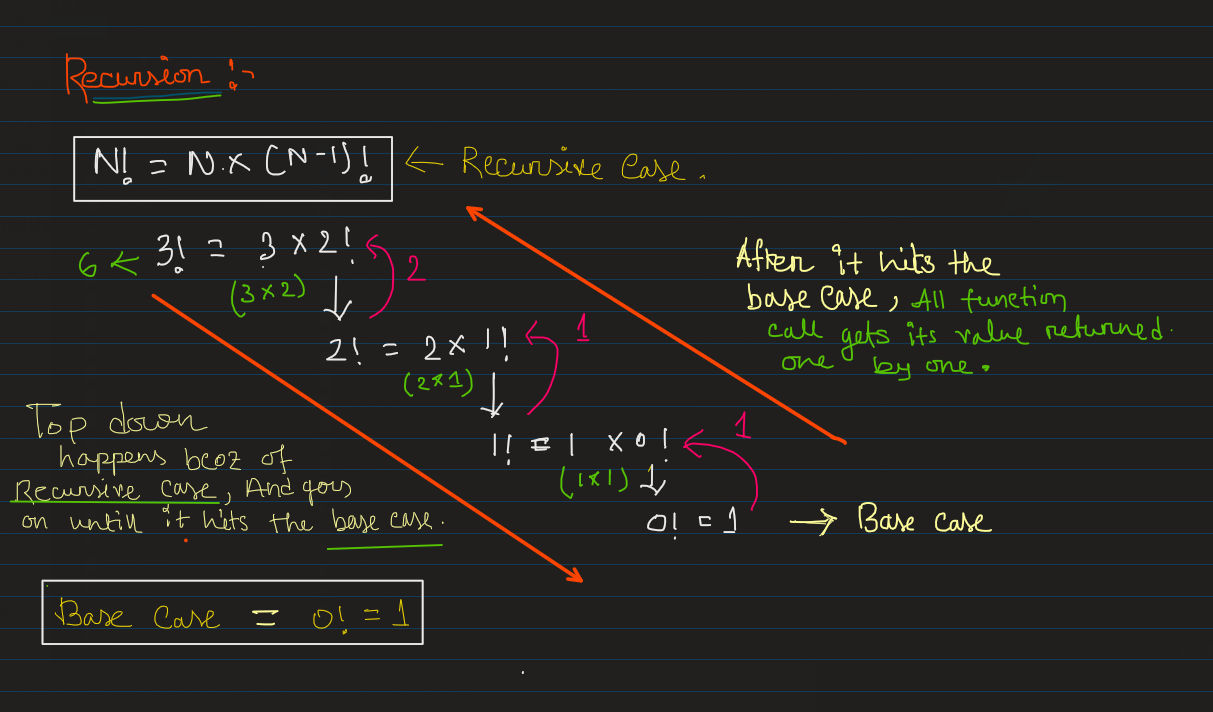 Recursion :-
N! = N.x (N-1)! ← Recursive Case.
6 ← 3! = 3 x 2! 2
(3x2) ↓
2! = 2 x 1! 1
(2x1) ↓
1! = 1 x 0! 1
(1x1) ↓
0! = 1 → Base case
After it hits the
base case, All function
call gets its value returned.
one by one.
Top down
happens bcoz of
Recursive case, And goes
on untill it hits the base case.
Base Case = 0! = 1